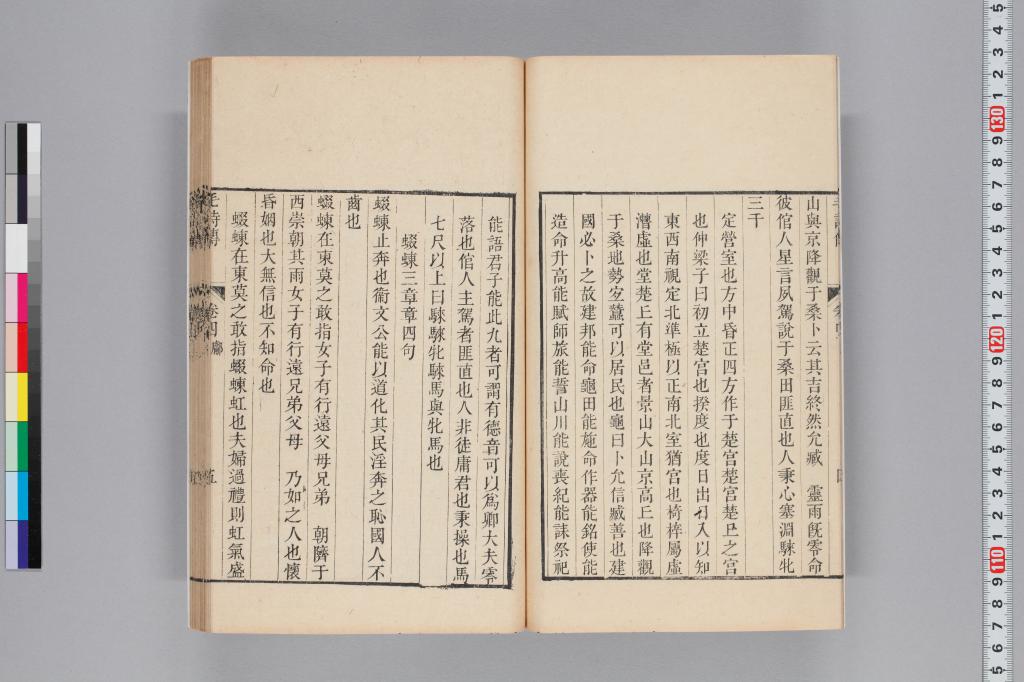 山與京降觀于桑卜云其吉終然允臧　靈雨既零命
彼倌人星言夙駕說于桑田匪直也人秉心塞淵騋牝
三千
定營室也方中昏正四方作于楚宮楚宮楚丘之宮
也仲梁子曰初立楚宮也揆度也度日出日入以知
東西南視定北準極以正南北室猶宮也椅梓屬虛
漕虛也堂楚丘有堂邑者景山大山京高丘也降觀
于桑地勢宜蠶可以居民也龜曰卜允信臧善也建
國必卜之故建邦能命龜田能施命作器能銘使能
造命升高能賦師旅能誓山川能說喪紀能誄祭祀
能語君子能此九者可謂有德音可以爲卿大夫零
落也倌人主駕者匪直也人非徒庸君也秉操也馬
七尺以上曰騋騋牝騋馬與牝馬也
蝃蝀三章章四句
蝃蝀止奔也衞文公能以道化其民淫奔之恥國人不
齒也
蝃蝀在東莫之敢指女子有行遠父母兄弟　朝隮于
西崇朝其雨女子有行遠兄弟父母　乃如之人也懷
昏姻也大無信也不知命也
蝃蝀在東莫之敢指蝃蝀虹也夫婦過禮則虹氣盛
毛詩傳
卷四鄘
五